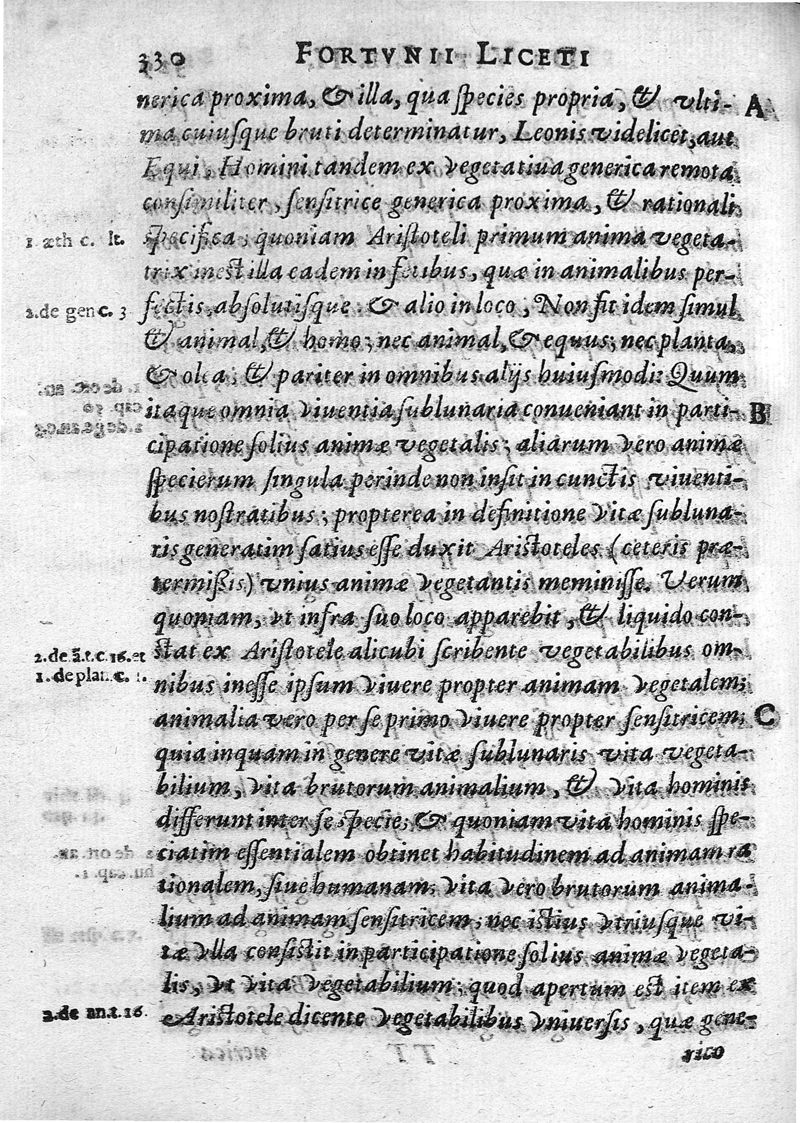 330 FORTVNII LICETI
nerica proxima, & illa, qua species propria, & vlti- A
ma cuiusque bruti determinatur, Leonis videlicet, aut
Equi, Homini tandem ex vegetatiua generica remota
consimiliter, sensitrice generica proxima, & rationali
1. æth c. lt. specifica; quoniam Aristoteli primum anima vegeta-
trix inest illa eadem in fetibus, quæ in animalibus per-
2.de gen c. 3 fectis, absolutisque. & alio in loco, Non fit idem simul
& animal, & homo; nec animal, & equus; nec planta,
& olea; & pariter in omnibus alijs huiusmodi: Quum
itaque omnia viuentia sublunaria conueniant in parti- B
cipatione solius animæ vegetalis; aliarum vero animæ
specierum singula perinde non insit in cunctis viuenti-
bus nostratibus; propterea in definitione vitæ subluna-
ris generatim satius esse duxit Aristoteles (ceteris præ-
termißis) vnius animæ vegetantis meminisse. Verum
quoniam, vt infra suo loco apparebit, & liquido con-
2. de ã.t.c.16. et stat ex Aristotele alicubi scribente vegetabilibus om-
1. de plat. c. 1. nibus inesse ipsum viuere propter animam vegetalem;
animalia vero per se primo viuere propter sensitricem; C
quia inquam in genere vitæ sublunaris vita vegeta-
bilium, vita brutorum animalium, & vita hominis
differunt inter se specie; & quoniam vita hominis spe-
ciatim essentialem obtinet habitudinem ad animam ra
tionalem, siue humanam, vita vero brutorum anima-
lium ad animam sensitricem; nec istius vtriusque vi-
tæ vlla consistit in participatione solius animæ vegeta-
lis, vt vita vegetabilium; quod apertum est item ex
2.de an.t.16. Aristotele dicente vegetabilibus vniuersis, quæ gene-
rico